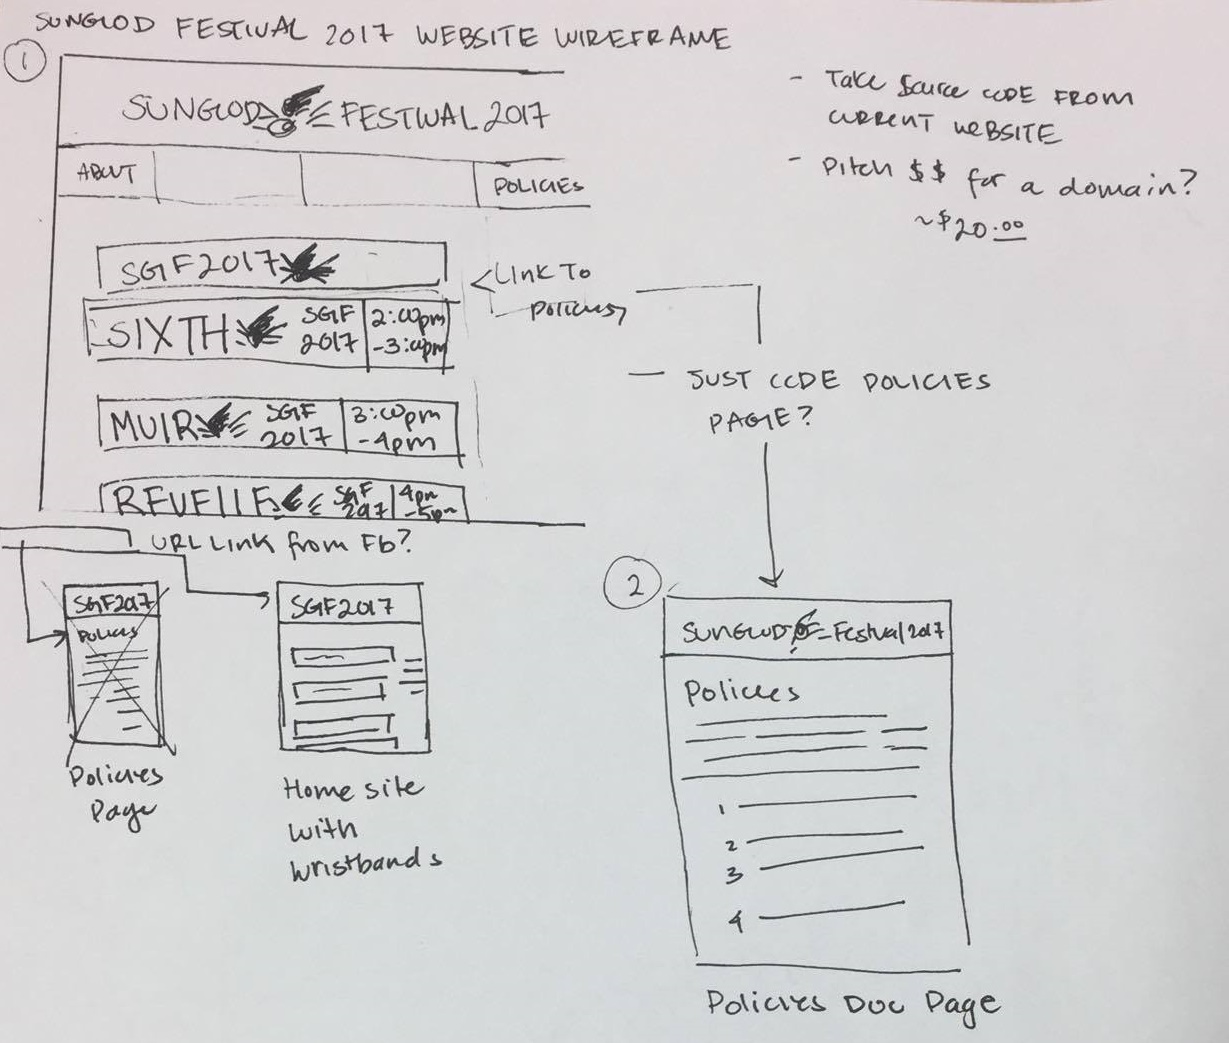 SUNGLOD FESTIVAL 2017 WEBSITE WIREFRAME
1
SUNGLOD FESTIVAL 2017
ABOUT
POLICIES
SGF2017
SIXTH SGF 2:00pm
2017 -3:00pm
MUIR SGF 3:00pm
2017 -4pm
REVELLE SGF 4pm
2017 -5pm
<LINK TO
POLICIES>
- Take Source CODE FROM
CURRENT WEBSITE
- Pitch $$ for a domain?
~$20.00
— JUST CODE POLICIES
PAGE?
URL LINK from Fb?
SGF2017
POLICIES
Policies
Page
SGF2017
Home site
with
wristbands
2
SUNGLOD Festival 2017
Policies
1
2
3
4
Policies Doc Page